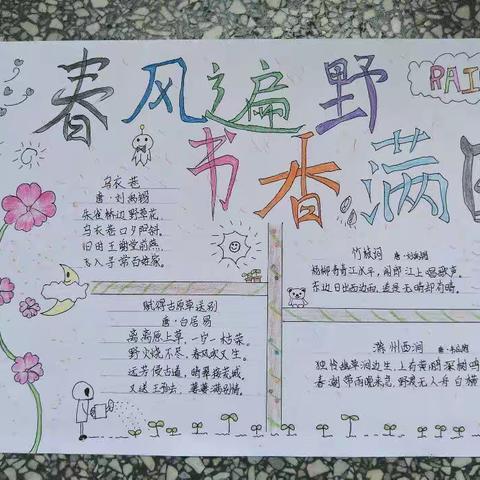 春风遍野
RAI
书香满
乌衣巷
唐·刘禹锡
朱雀桥边野草花,
乌衣巷口夕阳斜。
旧时王谢堂前燕,
飞入寻常百姓家。
赋得古原草送别
唐·白居易
离离原上草,一岁一枯荣。
野火烧不尽,春风吹又生。
远芳侵古道,晴翠接荒城。
又送王孙去,萋萋满别情。
竹枝词 唐·刘禹锡
杨柳青青江水平,闻郎江上唱歌声。
东边日出西边雨,道是无晴却有晴。
滁州西涧 唐·韦应物
独怜幽草涧边生,上有黄鹂深树鸣
春潮带雨晚来急,野渡无人舟自横